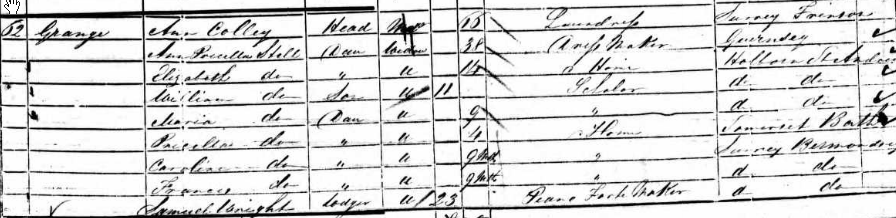 62 Grange Ann Colley Head 65 Laundress Surrey
Ann Priscilla Hell Dau Widow 38 Dress Maker Guernsey
Elizabeth do " u 14 Holborn St
William do Son u 11 Scholar do do
Maria do Dau u 9 " do do
Priscilla do " u 4 Home Somerset Bath
Caroline do " u 9 Mth " Surrey Bermondsey
Francis do " u 9 Mth " do do
Samuel Wright Lodger u 23 Piano Forte Maker do do